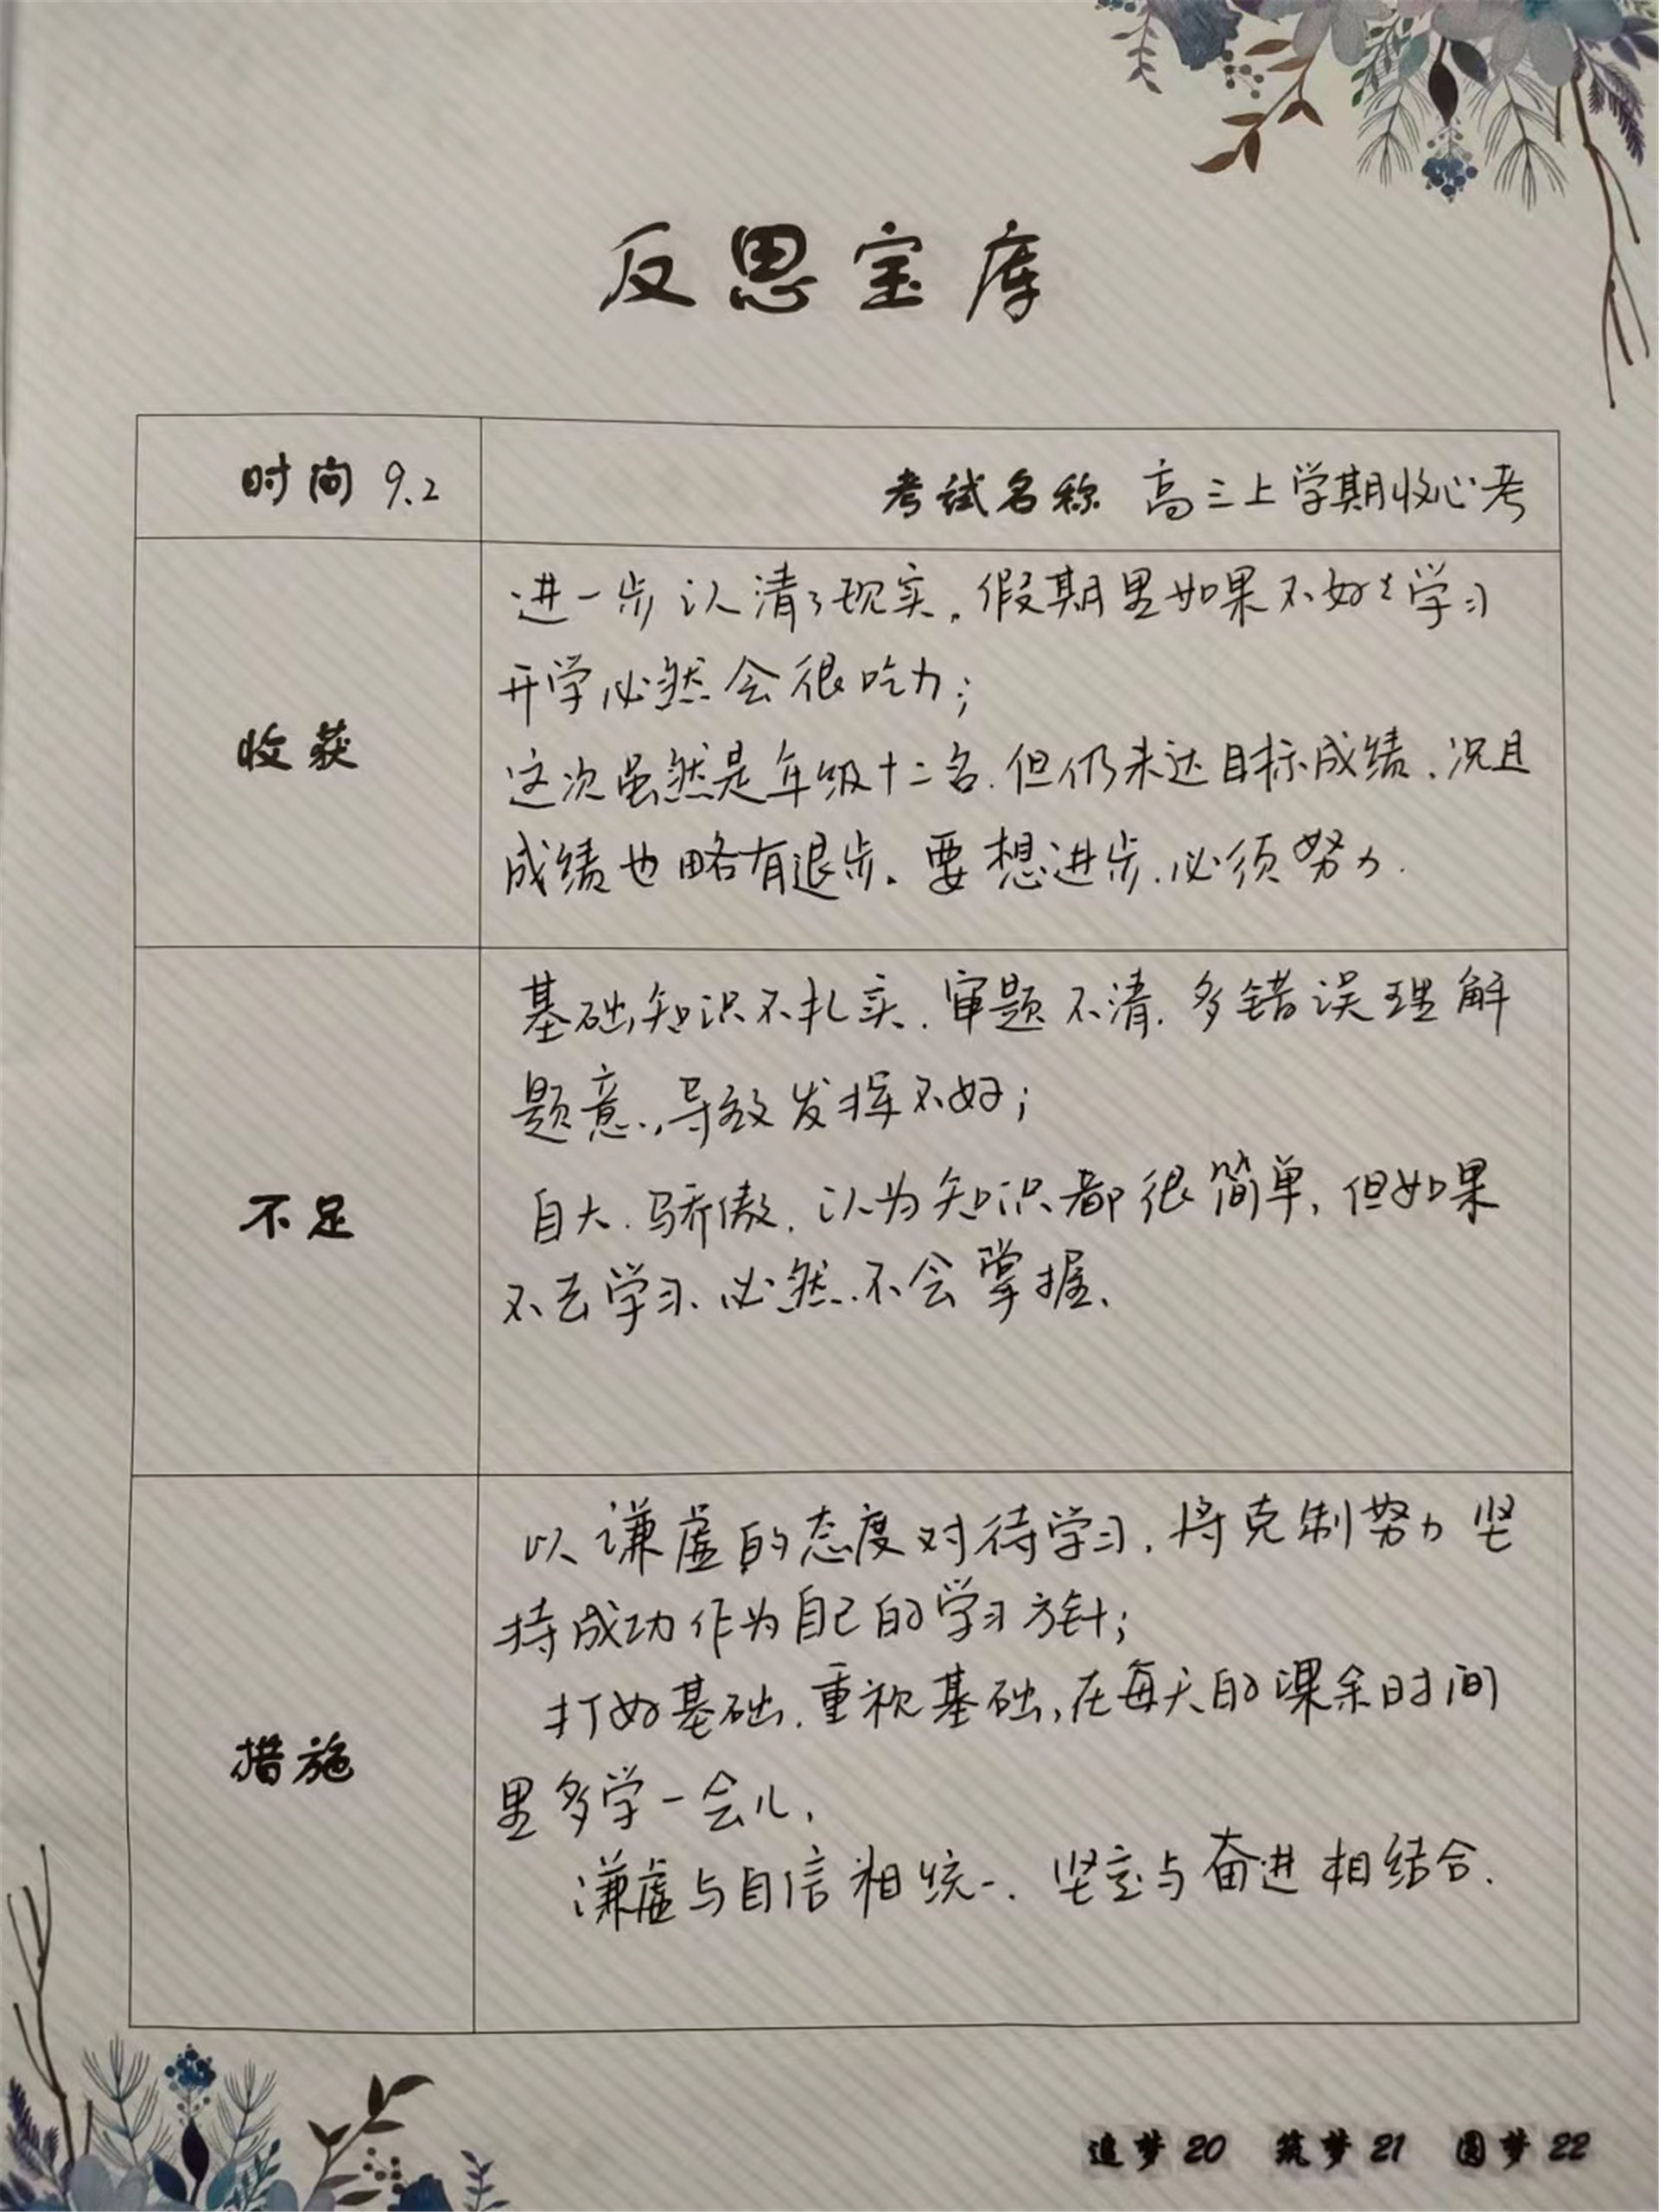 反思宝库
时间 9.2 考试名称 高三上学期收心考
进一步认清了现实.假期里如果不好好学习
开学必然会很吃力;
这次虽然是年级十二名.但仍未达目标成绩.况且
收获
成绩也略有退步.要想进步.必须努力.
基础知识不扎实.审题不清.多错误理解
题意.,导致发挥不好;
不足
自大.骄傲.认为知识都很简单,但如果
不去学习、必然不会掌握、
以谦虚的态度对待学习.将克制努力坚
持成功作为自己的学习方针;
打好基础.重视基础,在每天的课余时间
措施
里多学一会儿,
谦虚与自信相统一.坚定与奋进相结合.
追梦20 筑梦21 圆梦22